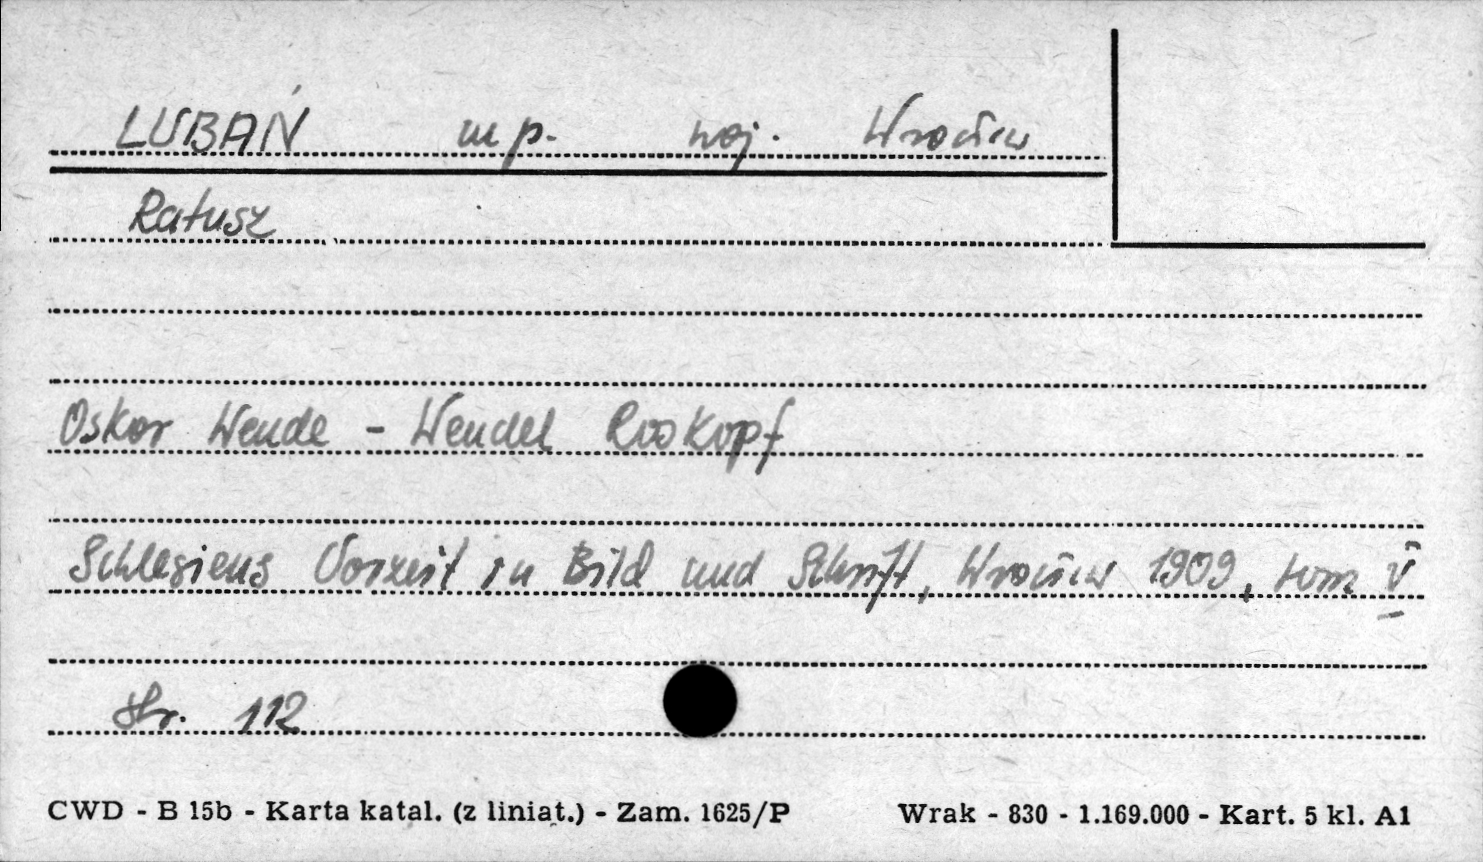 LUBAŃ m p. woj. Wrocław
Ratusz
Oskar Wende - Wendel Roskopf
Schlesiens Vorzeit in Bild und Schrift, Wrocław 1909, tom V
str. 112
CWD - B 15b - Karta katal. (z liniat.) - Zam. 1625/P Wrak - 830 - 1.169.000 - Kart. 5 kl. A1